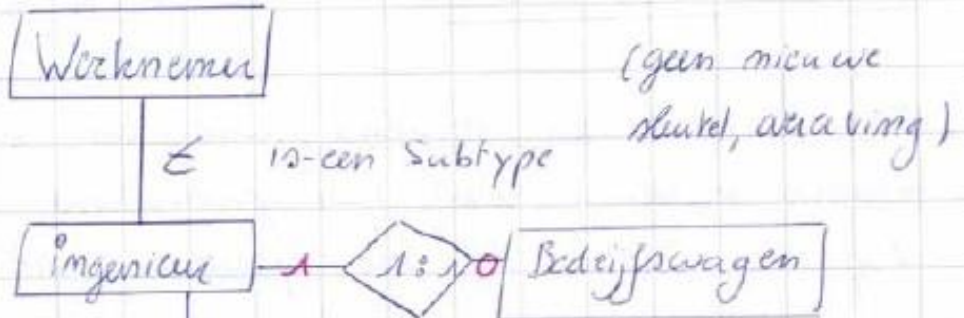 Werknemer
(geen nieuwe
sleutel, overerving)
∈ is-een Subtype
ingenieur 1 1:1 0 Bedrijfswagen